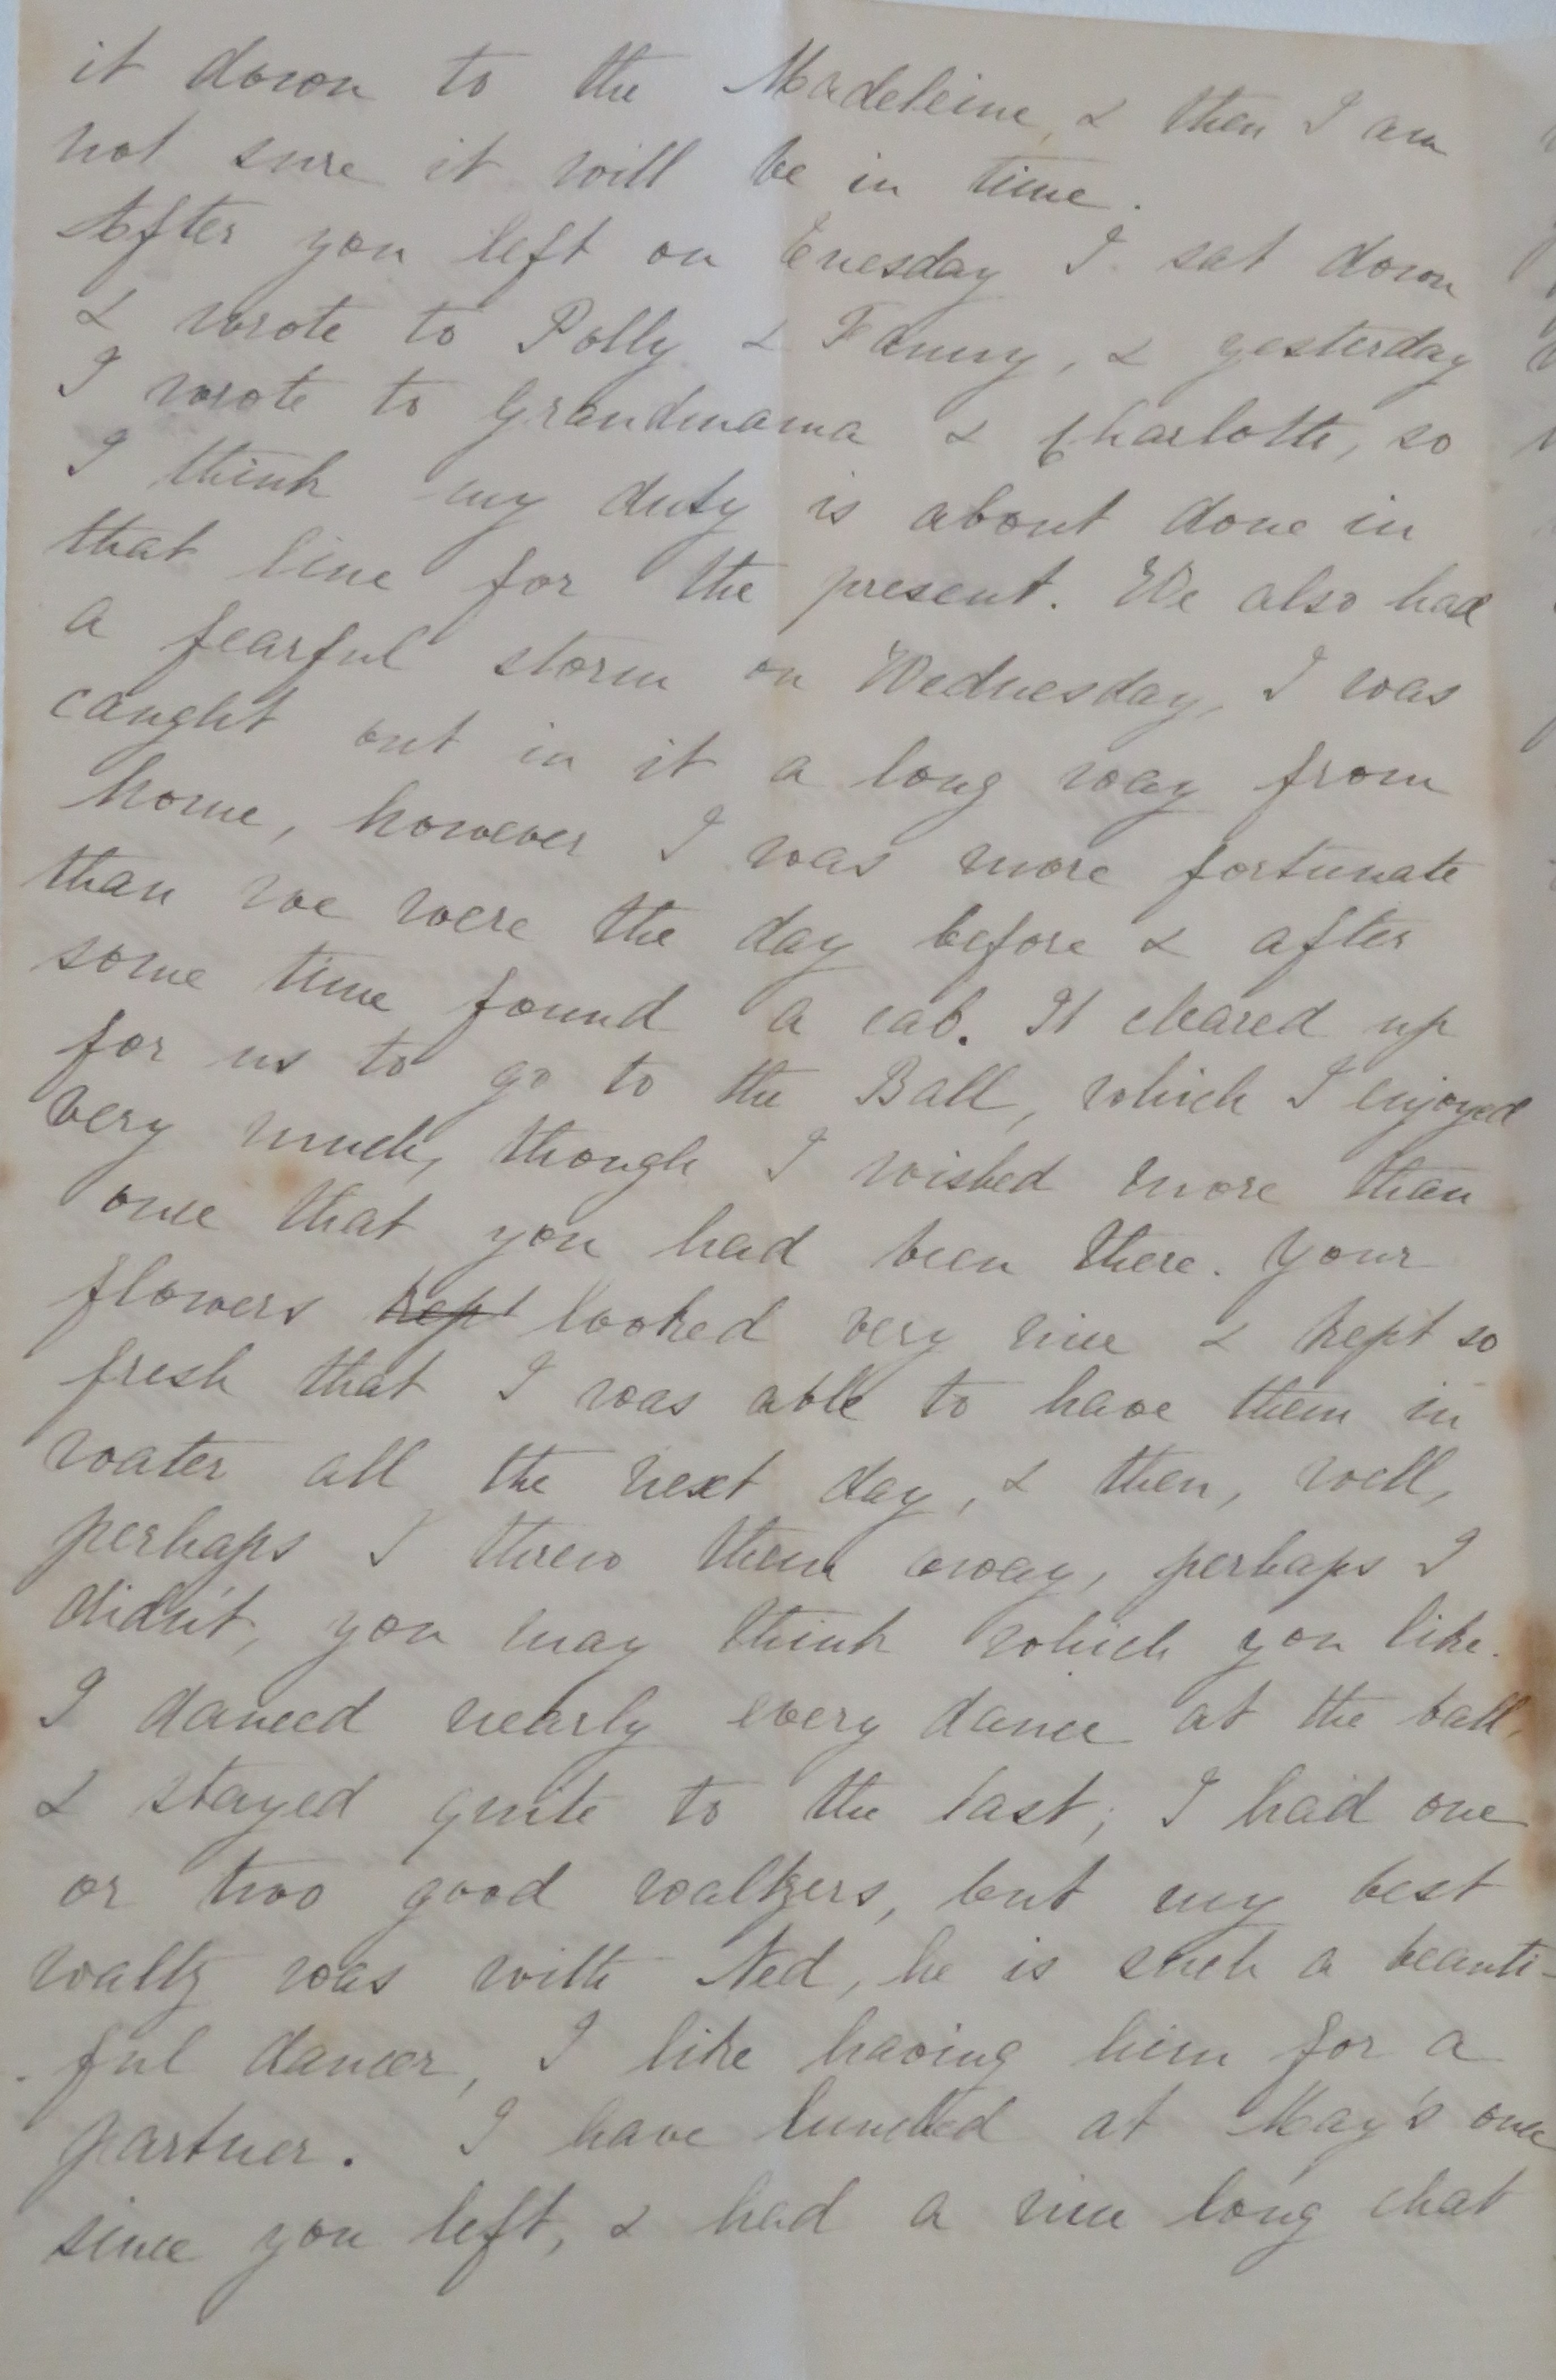 it down to the Madeleine, & then I am
not sure it will be in time.
After you left on Tuesday I sat down
& wrote to Polly & Fanny, & yesterday
I wrote to Grandmama & Charlotte, so
I think my duty is about done in
that line for the present. We also had
a fearful storm on Wednesday, I was
caught out in it a long way from
home, however I was more fortunate
than we were the day before & after
some time found a cab. It cleared up
for us to go to the Ball, which I enjoyed
very much, though I wished more than
once that you had been there. Your
flowers kept looked very nice & kept so
fresh that I was able to have them in
water all the next day, & then, well,
perhaps I threw them away, perhaps I
didn't, you may think which you like.
I danced nearly every dance at the ball,
& stayed quite to the last; I had one
or two good waltzers, but my best
waltz was with Ned, he is such a beauti-
ful dancer, I like having him for a
partner. I have lunched at May's once
since you left, & had a nice long chat